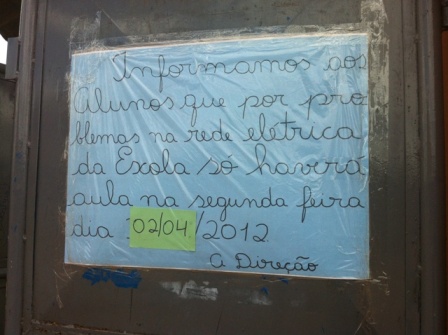 Informamos aos
Alunos que por pro
blemas na rede eletrica
da Exola só haverá
aula na segunda feira
dia 02/04/2012
A Direção